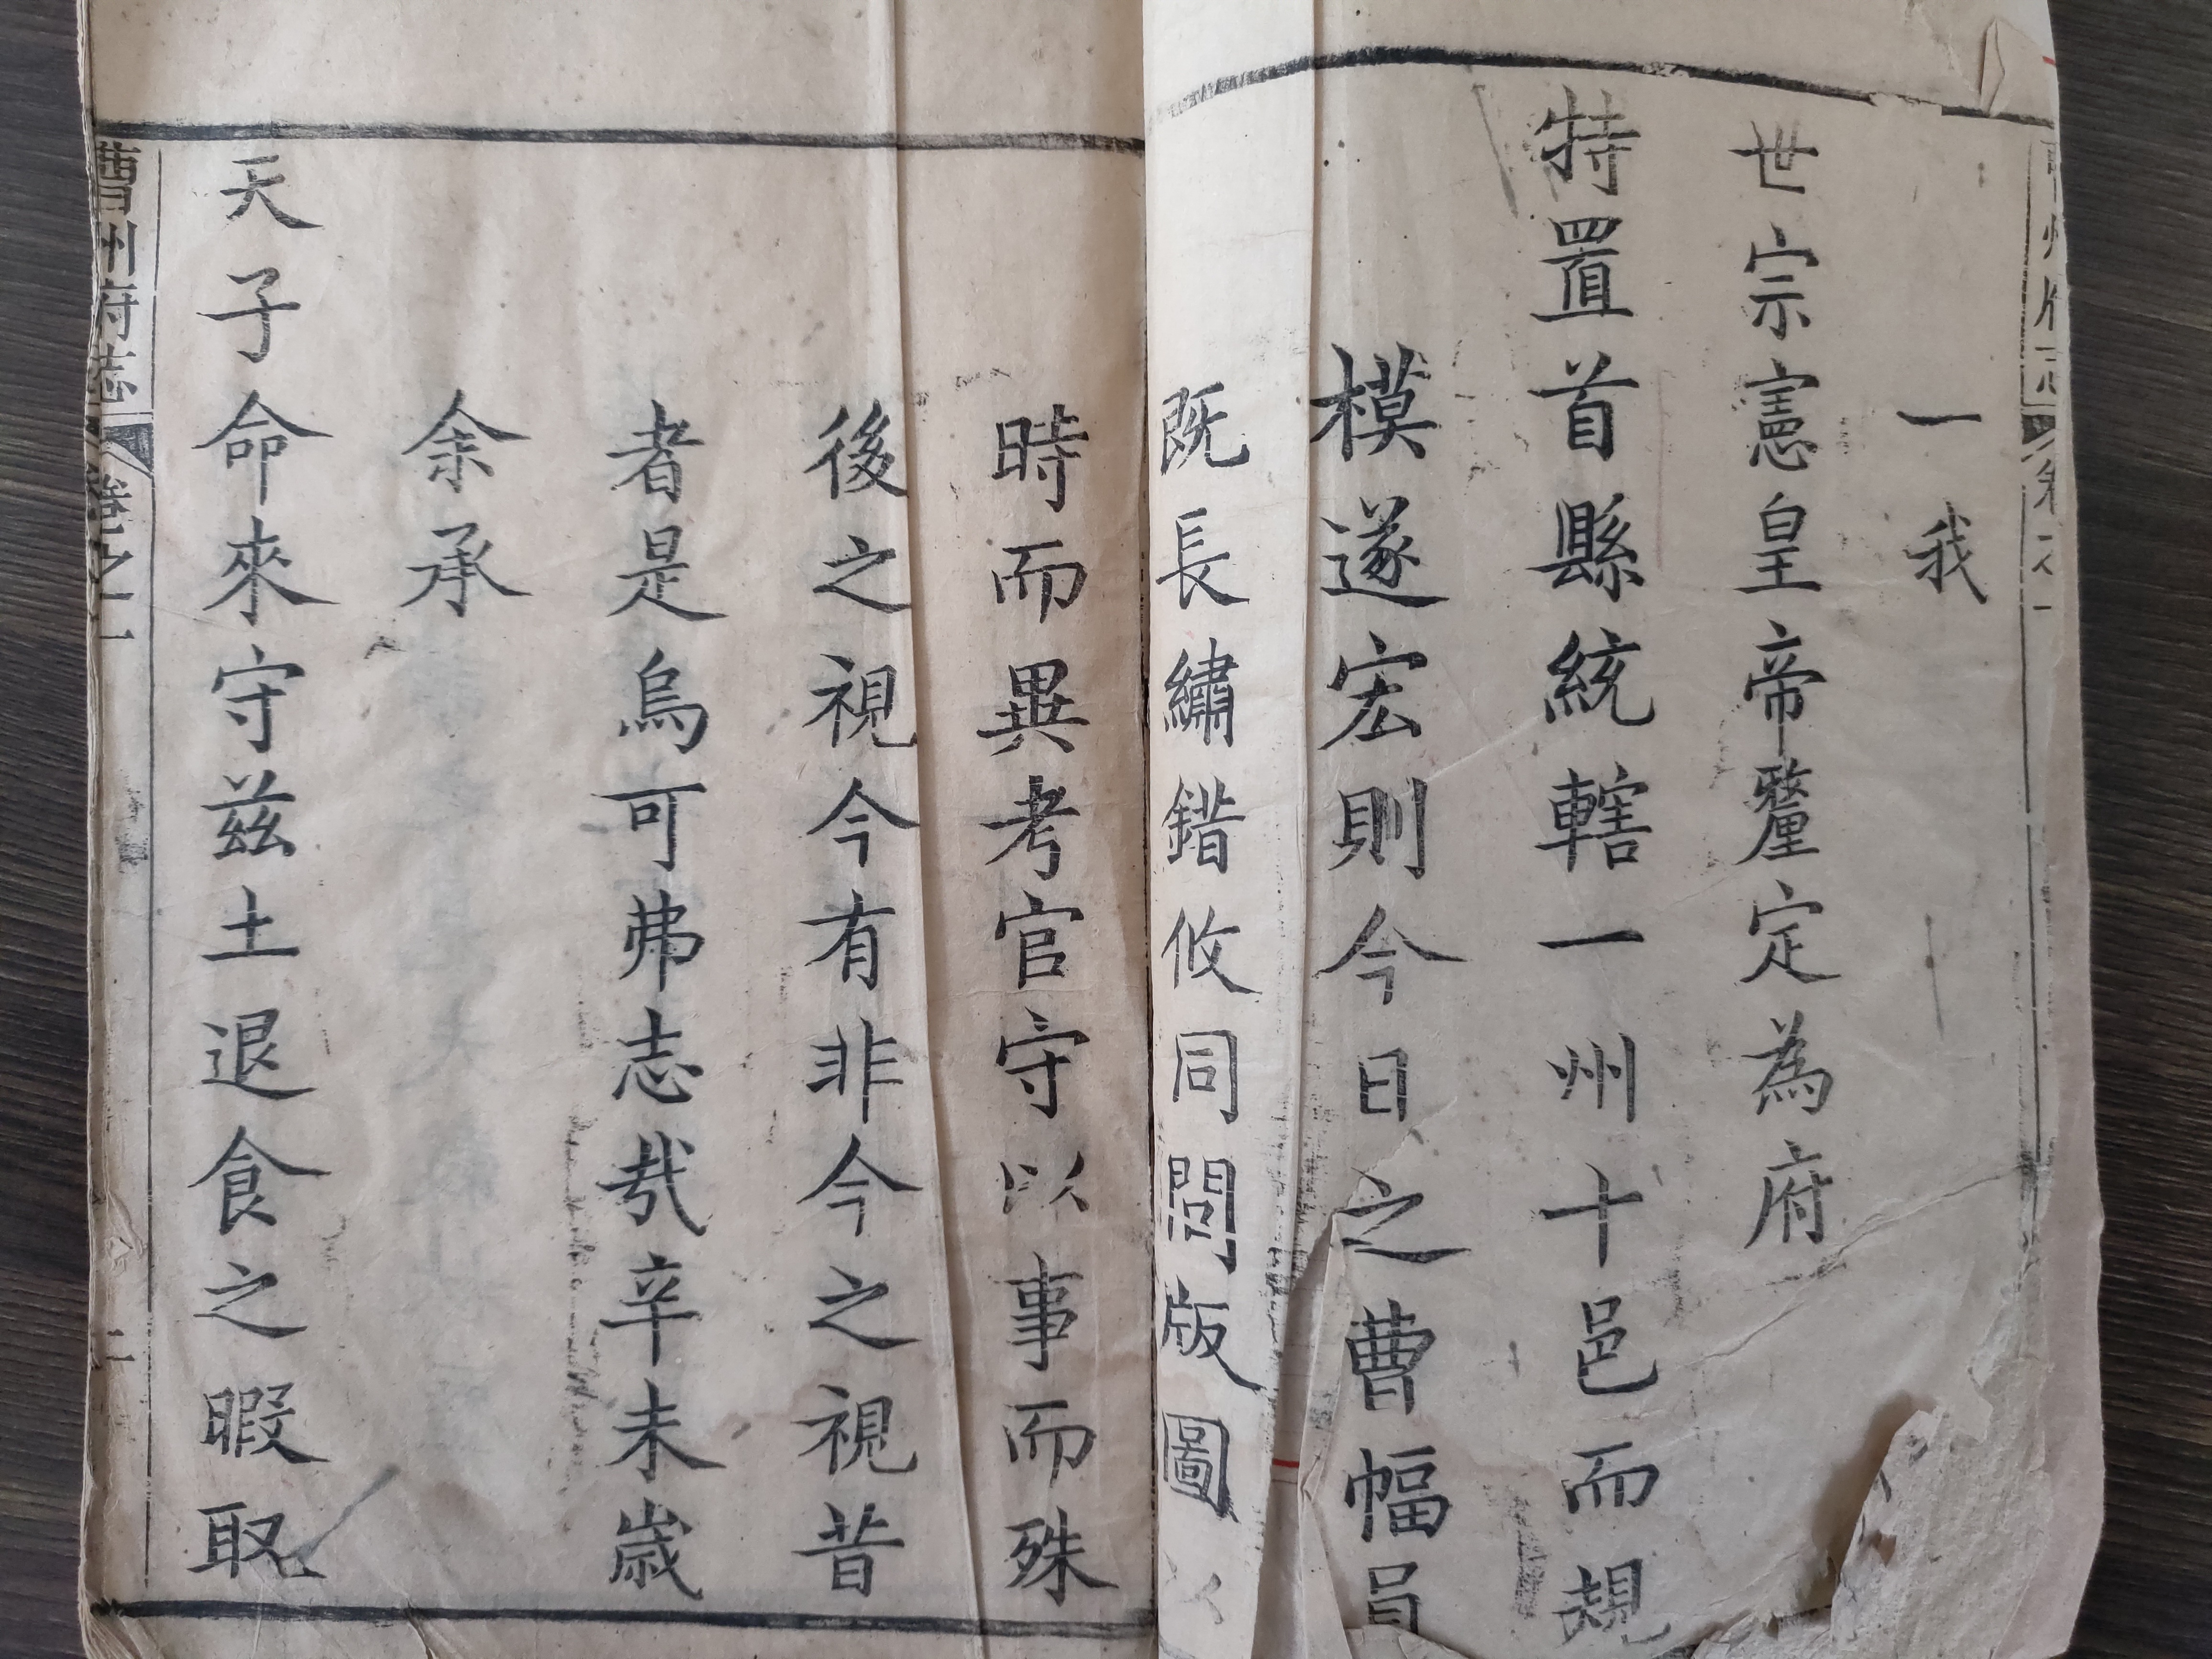 一我
世宗憲皇帝釐定為府
特置首縣統轄一州十邑而規
模遂宏則今日之曹幅員
既長繡錯攸同閭版圖以
時而異考官守以事而殊
後之視今有非今之視昔
者是烏可弗志哉辛未歲
余承
天子命來守茲土退食之暇取
曹州府志
卷之一
二